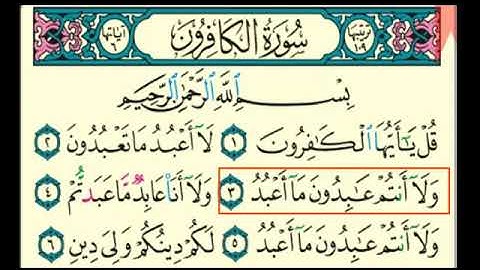 ترتيبها ١٠٩ سُورَةُ الْكَافِرُونَ آياتها ٦
بِسْمِ ٱللَّهِ ٱلرَّحْمَٰنِ ٱلرَّحِيمِ
قُلْ يَٰٓأَيُّهَا ٱلْكَٰفِرُونَ ١ لَآ أَعْبُدُ مَا تَعْبُدُونَ ٢
وَلَآ أَنتُمْ عَٰبِدُونَ مَآ أَعْبُدُ ٣ وَلَآ أَنَا۠ عَابِدٌ مَّا عَبَدتُّمْ ٤
وَلَآ أَنتُمْ عَٰبِدُونَ مَآ أَعْبُدُ ٥ لَكُمْ دِينُكُمْ وَلِىَ دِينِ ٦